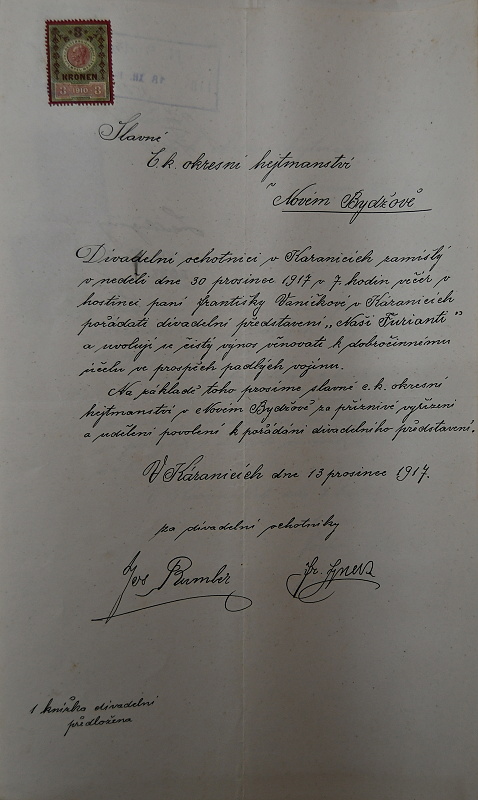 8
KRONEN
8 1910 8
Slavné
C. k. okresní hejtmanství
v Novém Bydžově
Divadelní ochotníci v Káranicích zamíšlý
v neděli dne 30 prosinec 1917 v 7. hodin večér v
hostinci paní františky Vaníčkové v Káranicích
pořádati divadelní představení „Naší Furianti"
a uvolují se čistý vynos věnovate k dobročinnému
účelu ve prospěch padlých vojínu.
Na základě toho prosíme slavné c.k. okresní
hejtmanství v Novém Bydžově za příznivé vyřízení
a udělení povolení k pořádání divadelního představení.
V Káranicích dne 13 prosinec 1917.
za divadelní ochotníky
Jos Rumler
Fr.
1 knížka divadelní
předložena